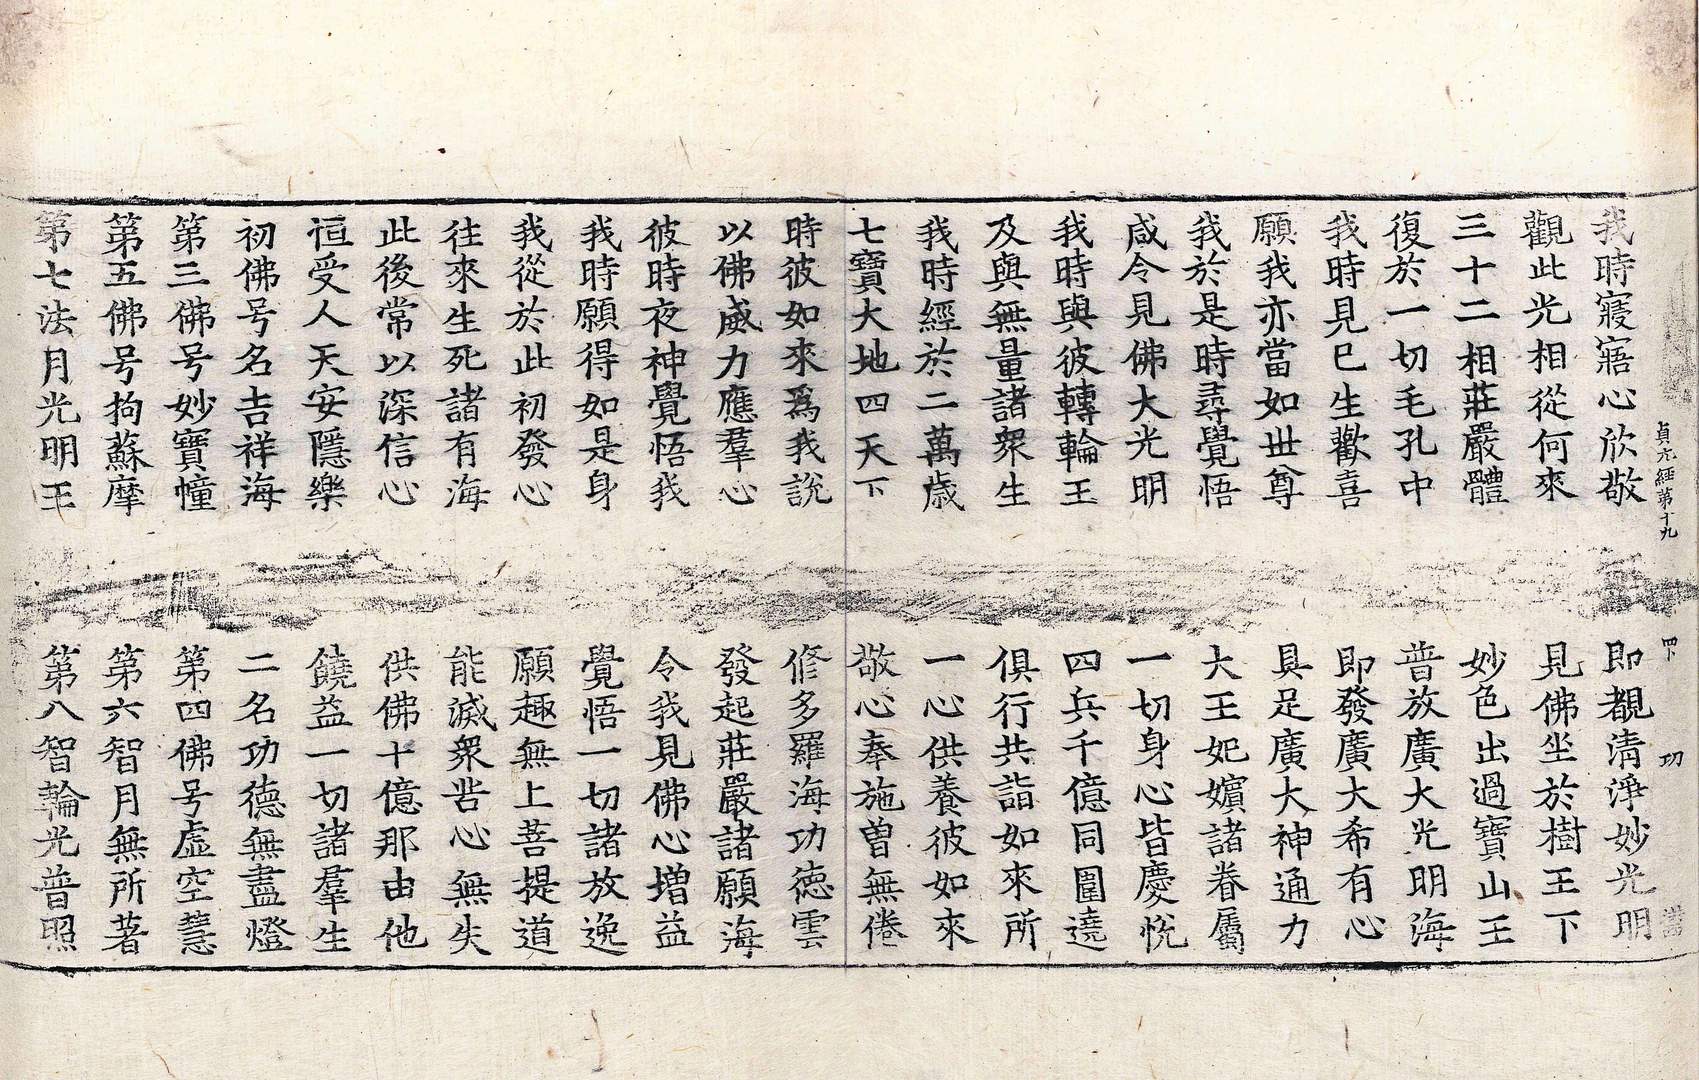 貞元經第十九 四下 功
我時寢寤心欣敬 即覩清淨妙光明
觀此光相從何來 見佛坐於樹王下
三十二相莊嚴體 妙色出過寶山王
復於一切毛孔中 普放廣大光明海
我時見已生歡喜 即發廣大希有心
願我亦當如世尊 具足廣大神通力
我於是時尋覺悟 大王妃嬪諸眷屬
咸令見佛大光明 一切身心皆慶悅
我時與彼轉輪王 四兵千億同圍遶
及與無量諸衆生 俱行共詣如來所
我時經於二萬歲 一心供養彼如來
七寶大地四天下 敬心奉施曾無倦
時彼如來爲我說 修多羅海功德雲
以佛威力應羣心 發起莊嚴諸願海
彼時夜神覺悟我 令我見佛心增益
我時願得如是身 覺悟一切諸放逸
我從於此初發心 願趣無上菩提道
往來生死諸有海 能滅衆苦心無失
此後常以深信心 供佛十億那由他
恒受人天安隱樂 饒益一切諸羣生
初佛号名吉祥海 二名功德無盡燈
第三佛号妙寶幢 第四佛号虛空慧
第五佛号拘蘇摩 第六智月無所著
第七法月光明王 第八智輪光普照